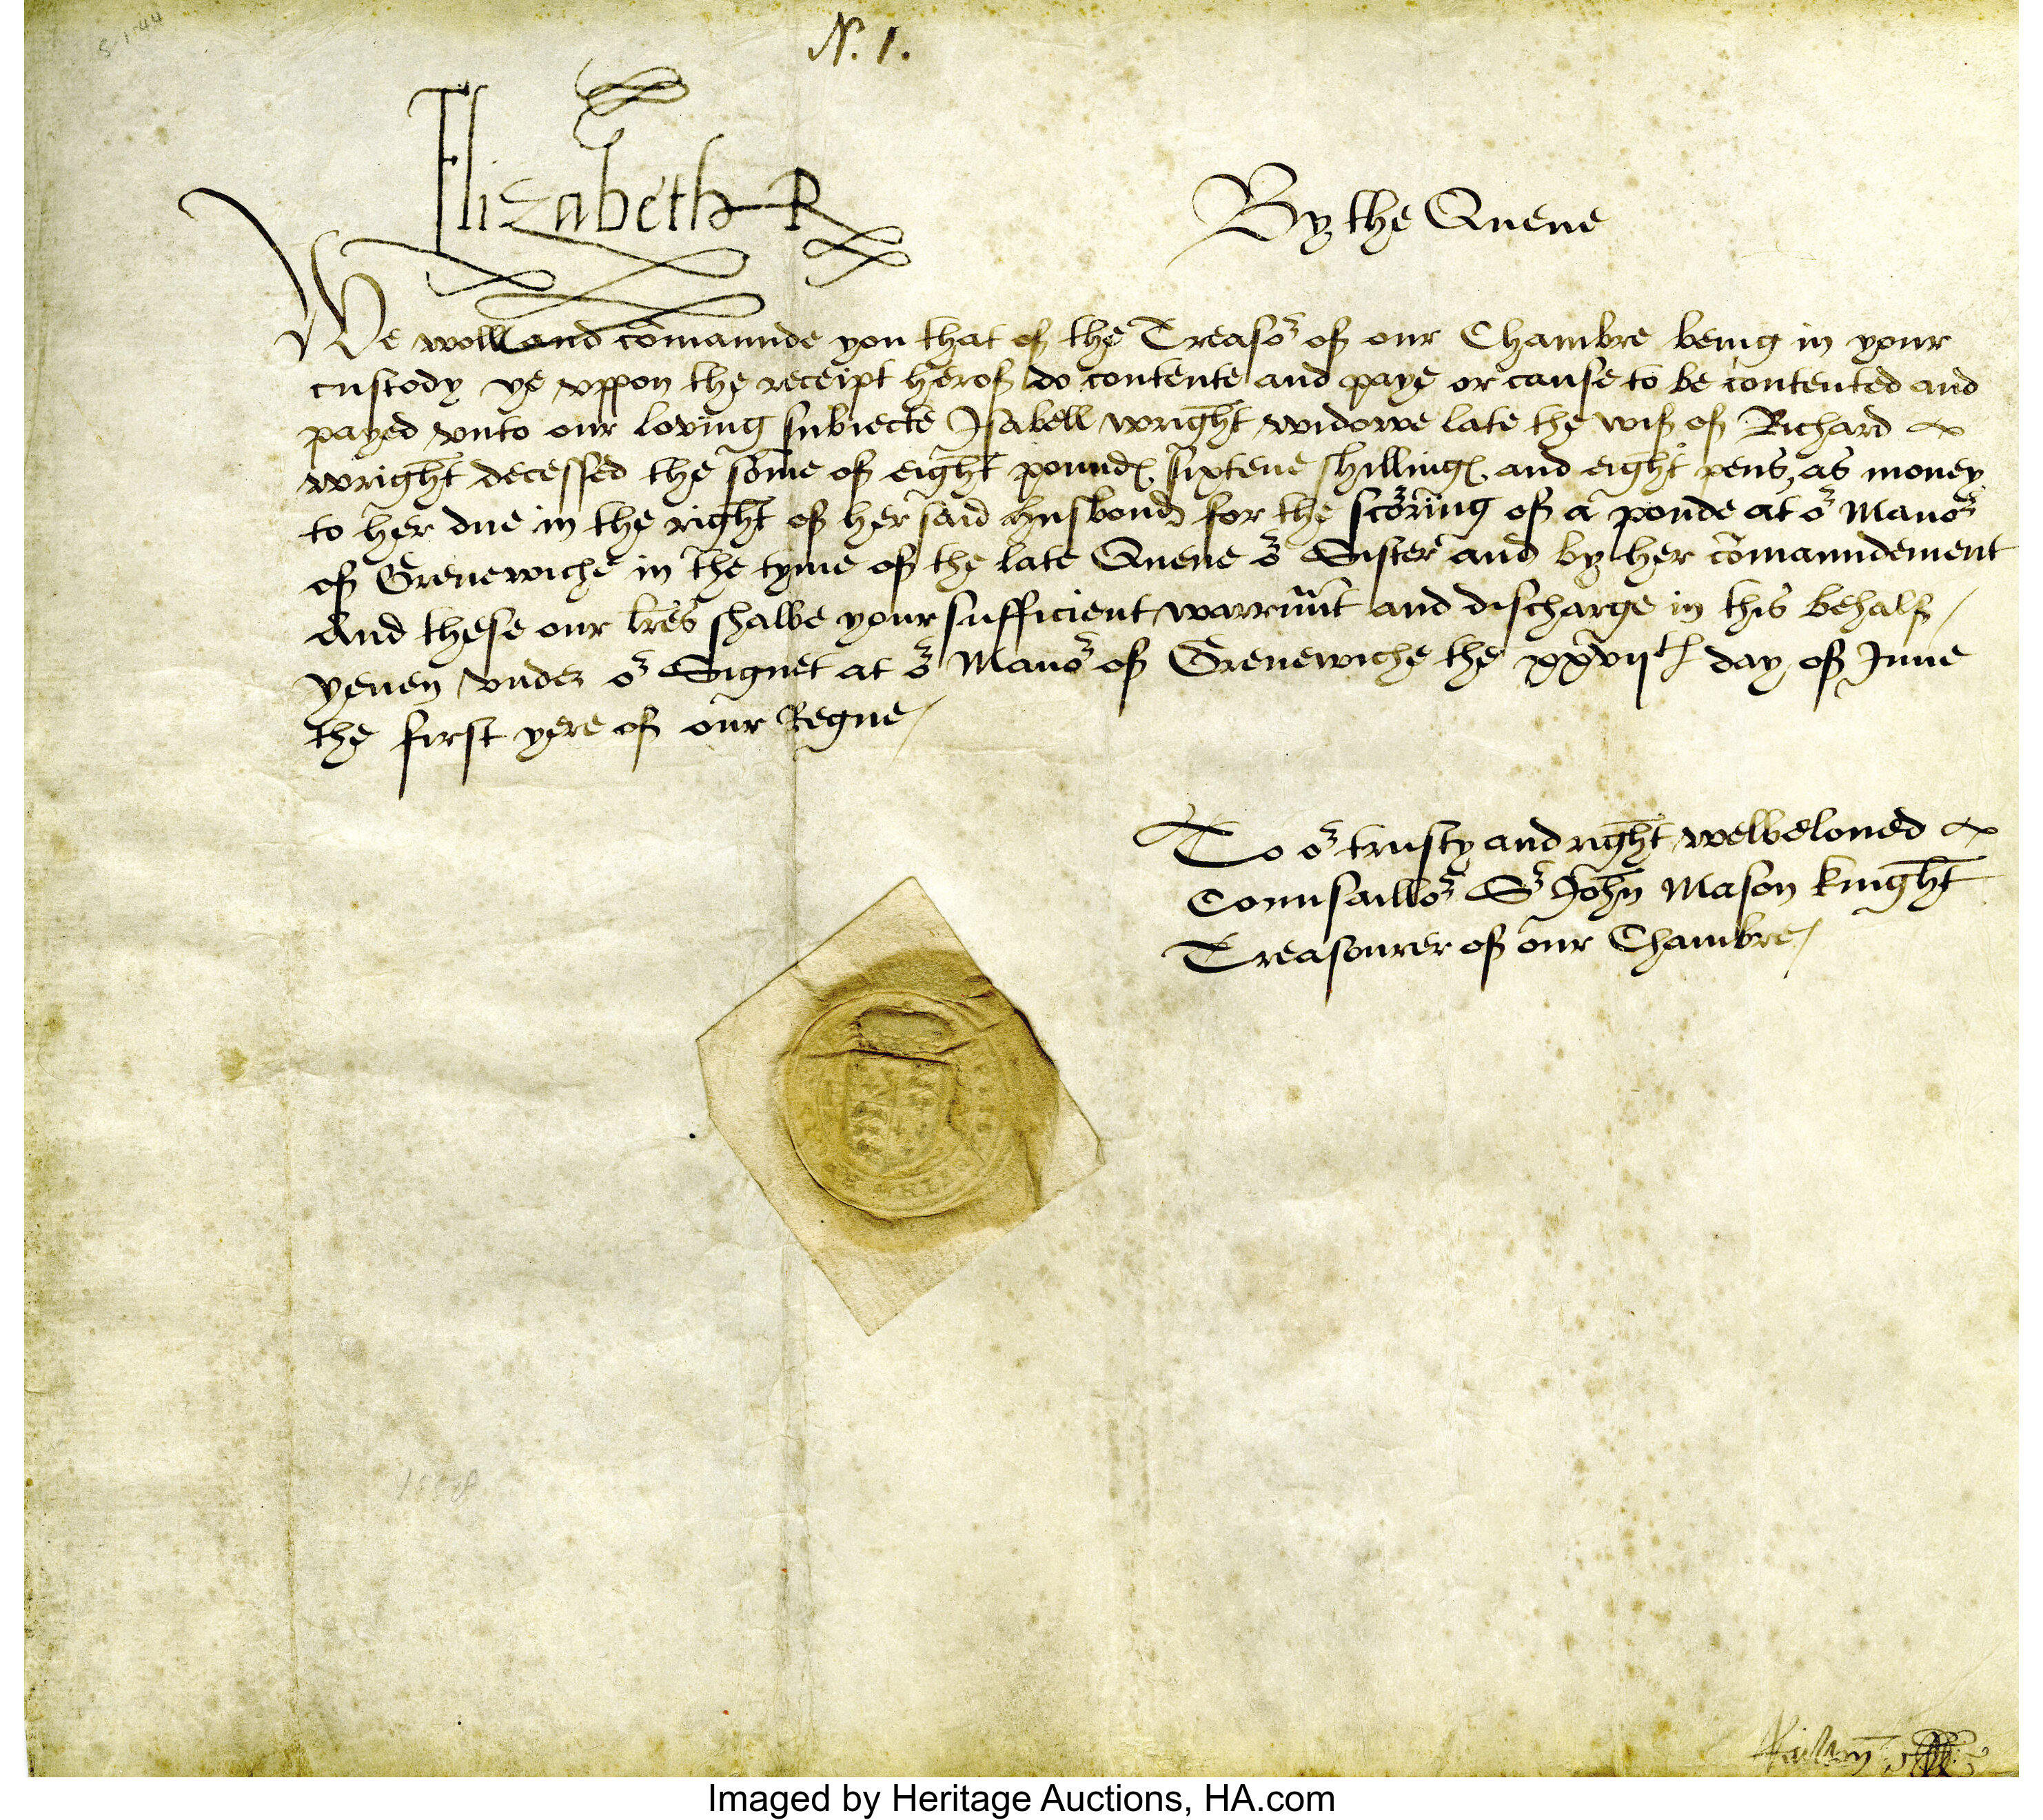 S-1-44
N. 1.
Elizabeth R
By the Quene
We woll and comaunde you that of the Treasor of our Chambre being in your
custody ye vppon the receipt herof do contente and paye or cause to be contented and
payed vnto our loving subiecte Isabell wright widowe late the wif of Richard
wright decessed the some of eight pound sixtene shilling and eight pens, as money
to her due in the right of her said husbond for the scoring of a ponde at or Manor
of Grenewiche in the tyme of the late Quene or Sister and by her comaundement
And these our lres shalbe your sufficient warraunt and discharge in this behalf /
yeuen vnder or Signet at or Manor of Grenewiche the xxvijth day of June
the first yere of our Regne /
To or trusty and right welbeloued
Counsaillor Sr John Mason knight
Treasourer of our Chambre /
1558
Imaged by Heritage Auctions, HA.com